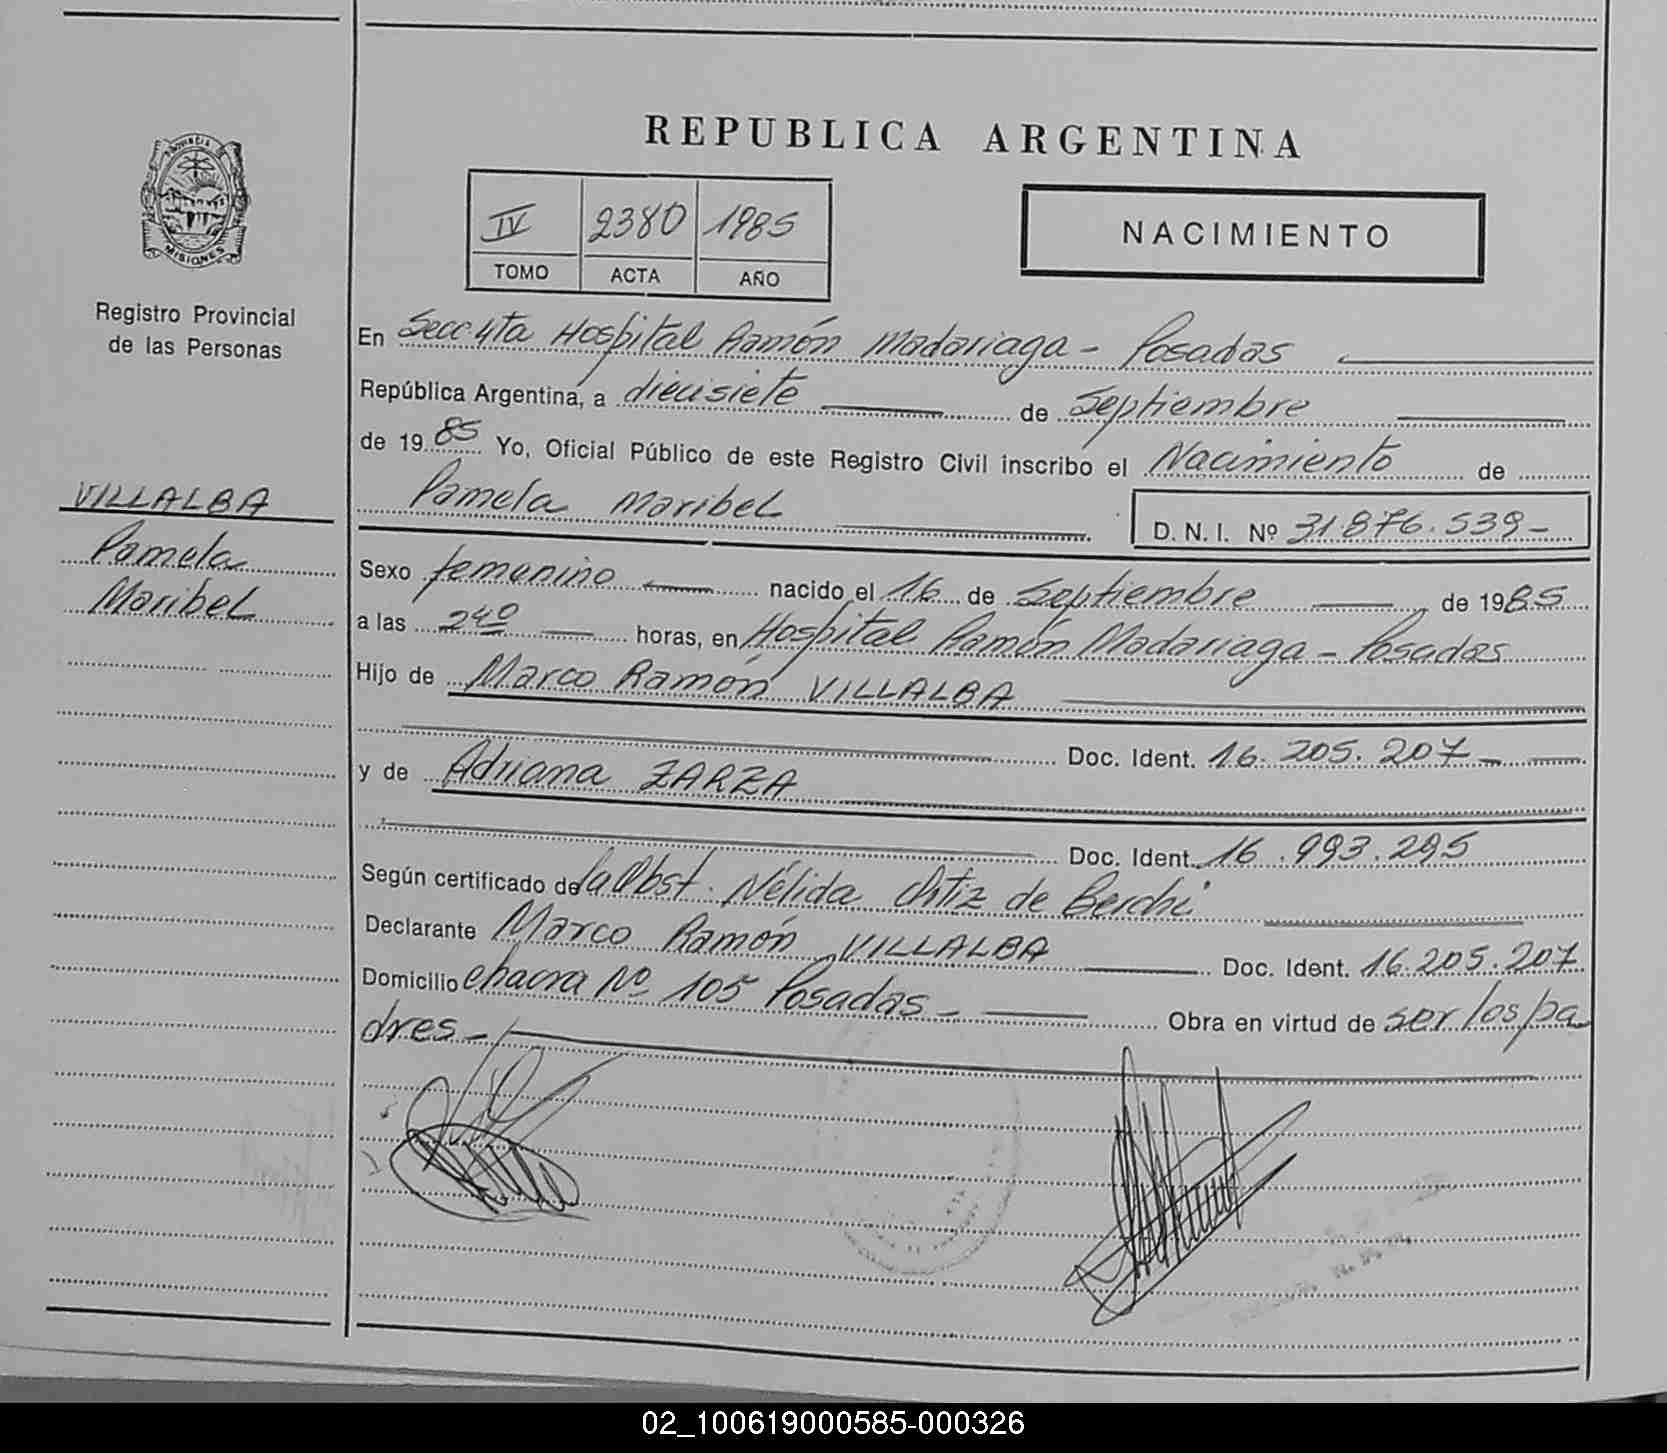 REPUBLICA ARGENTINA
PROVINCIA DE
MISIONES
IV 2380 1985
TOMO ACTA AÑO
NACIMIENTO
Registro Provincial
de las Personas
En Secc 4ta Hospital Ramón Madariaga - Posadas
República Argentina, a diecisiete de Septiembre
de 1985 Yo, Oficial Público de este Registro Civil inscribo el Nacimiento de
Pamela Maribel D. N. I. Nº 31876.539-
VILLALBA
Pamela
Maribel
Sexo femenino nacido el 16 de Septiembre de 1985
a las 24º horas, en Hospital Ramón Madariaga - Posadas
Hijo de Marco Ramón VILLALBA
Doc. Ident. 16.205.207-
y de Adriana ZARZA
Doc. Ident. 16.993.295
Según certificado de la Obst. Nélida Ortiz de
Declarante Marco Ramón VILLALBA Doc. Ident. 16.205.207
Domicilio chacra Nº 105 Posadas- Obra en virtud de ser los pa
dres-
02_100619000585-000326